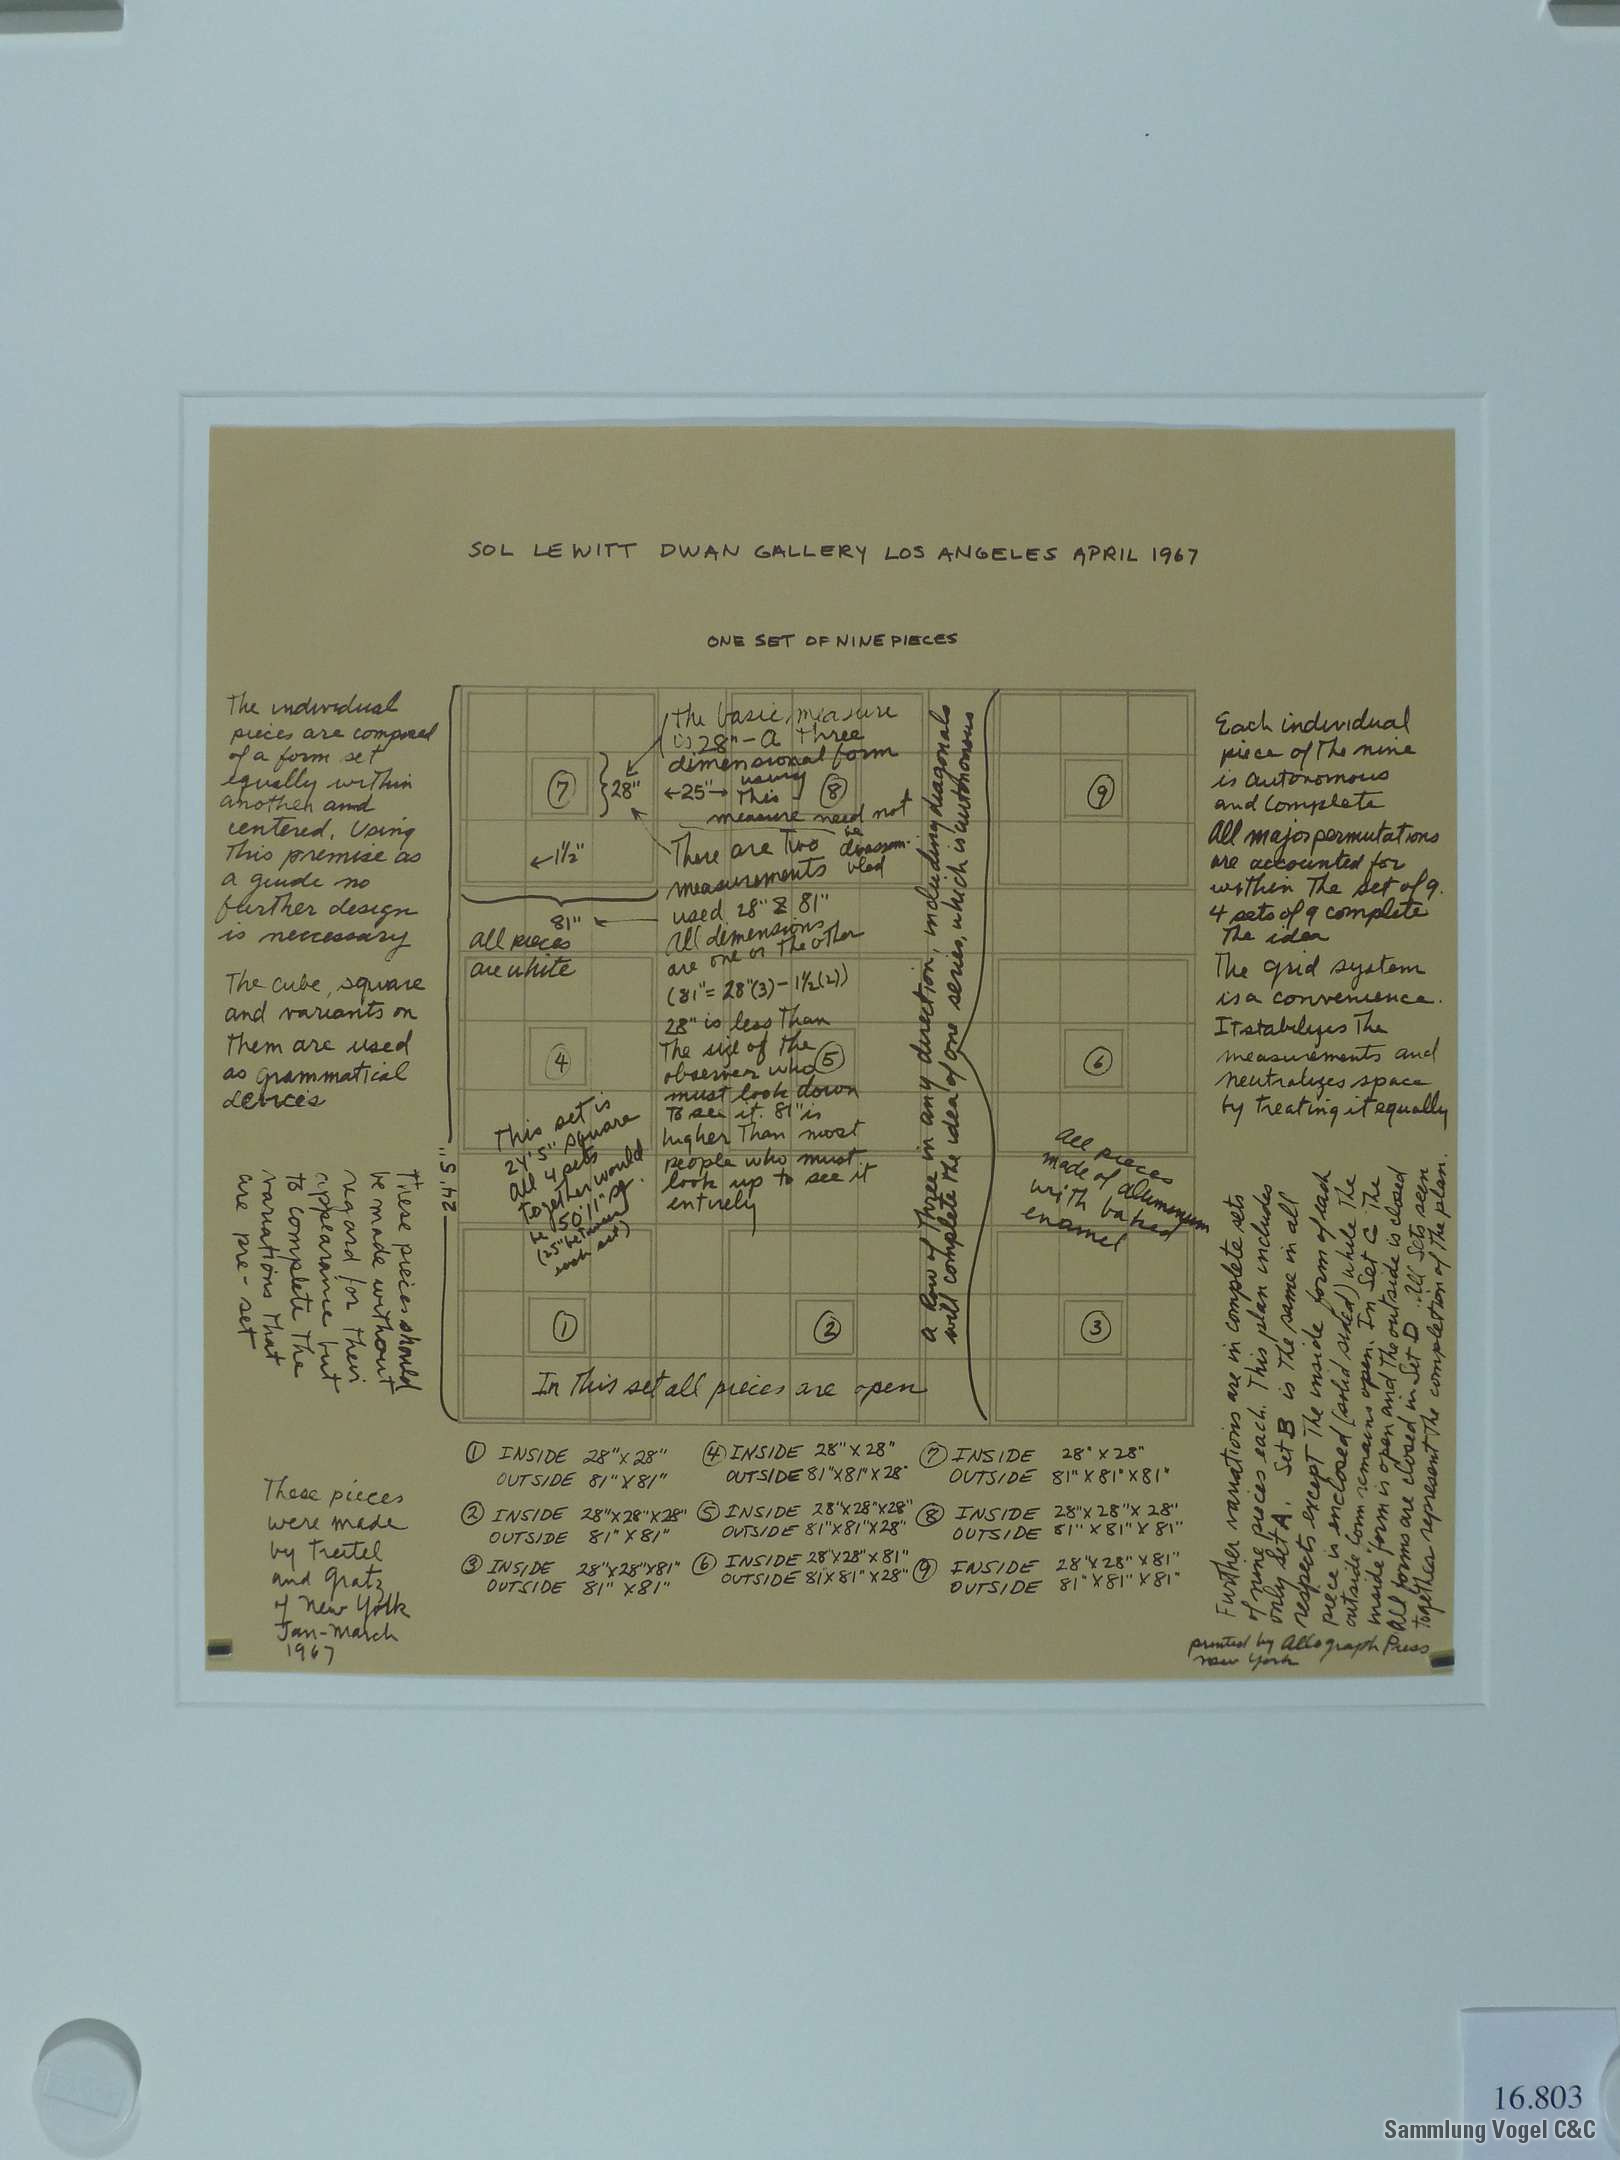 SOL LEWITT DWAN GALLERY LOS ANGELES APRIL 1967
ONE SET OF NINE PIECES
The individual
pieces are composed
of a form set
equally within
another and
centered. Using
this premise as
a guide no
further design
is neccessary
The cube, square
and variants on
them are used
as grammatical
devices
These pieces should
be made without
regard for their
appearance but
to complete the
variations that
are pre-set
These pieces
were made
by Treitel
and Gratz
of New York
Jan-March
1967
7
28"
←1½"
81"
All pieces
are white
24'5"
4
This set is
24'5" square
All 4 sets
together would
be 50'11" sq.
(25" between
each set)
1
The basic measure
is 28" - A three
dimensional form
using
←25"→ this
8
measure need not
be
disassem-
bled
There are two
measurements
used 28" & 81"
All dimensions
are one or the other
(81" = 28"(3) - 1½(2))
28" is less than
the size of the
observer who
must look down
to see it. 81" is
higher than most
people who must
look up to see it
entirely
5
2
a Row of three in any direction, including diagonals
will complete the idea of one series, which is autonomous
9
6
All pieces
made of aluminum
with baked
enamel
3
In this set all pieces are open
① INSIDE 28" X 28"
OUTSIDE 81" X 81"
② INSIDE 28"X28"X28"
OUTSIDE 81" X 81"
③ INSIDE 28"X28"X81"
OUTSIDE 81" X 81"
④ INSIDE 28" X 28"
OUTSIDE 81"X81"X28"
⑤ INSIDE 28"X28"X28"
OUTSIDE 81"X81"X28"
⑥ INSIDE 28"X28"X81"
OUTSIDE 81X81"X28"
⑦ INSIDE 28" X 28"
OUTSIDE 81" X 81" X 81"
⑧ INSIDE 28" X 28" X 28"
OUTSIDE 81" X 81" X 81"
⑨ INSIDE 28" X 28" X 81"
OUTSIDE 81" X 81" X 81"
Each individual
piece of the nine
is autonomous
and complete
All major permutations
are accounted for
within the set of 9.
4 sets of 9 complete
the idea
The grid system
is a convenience.
It stabilizes the
measurements and
neutralizes space
by treating it equally
Further variations are in complete sets
of nine pieces each. This plan includes
only set A. Set B is the same in all
respects except the inside form of each
piece is enclosed (solid sided) while the
outside form remains open. In Set C the
inside form is open and the outside is closed
All forms are closed in Set D. All sets seen
together represent the completion of the plan.
printed by Allograph Press
New York
16.803
Sammlung Vogel C&C